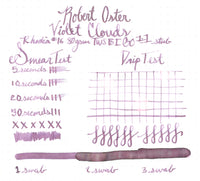 Robert Oster
Violet Clouds
Rhodia #16 80gsm TWSBI ECO 1.1 stub
Smear Test
Drip Test
5 seconds
10 seconds
20 seconds
30 seconds
XXXXXX
1. swab
2. swab
3. swab